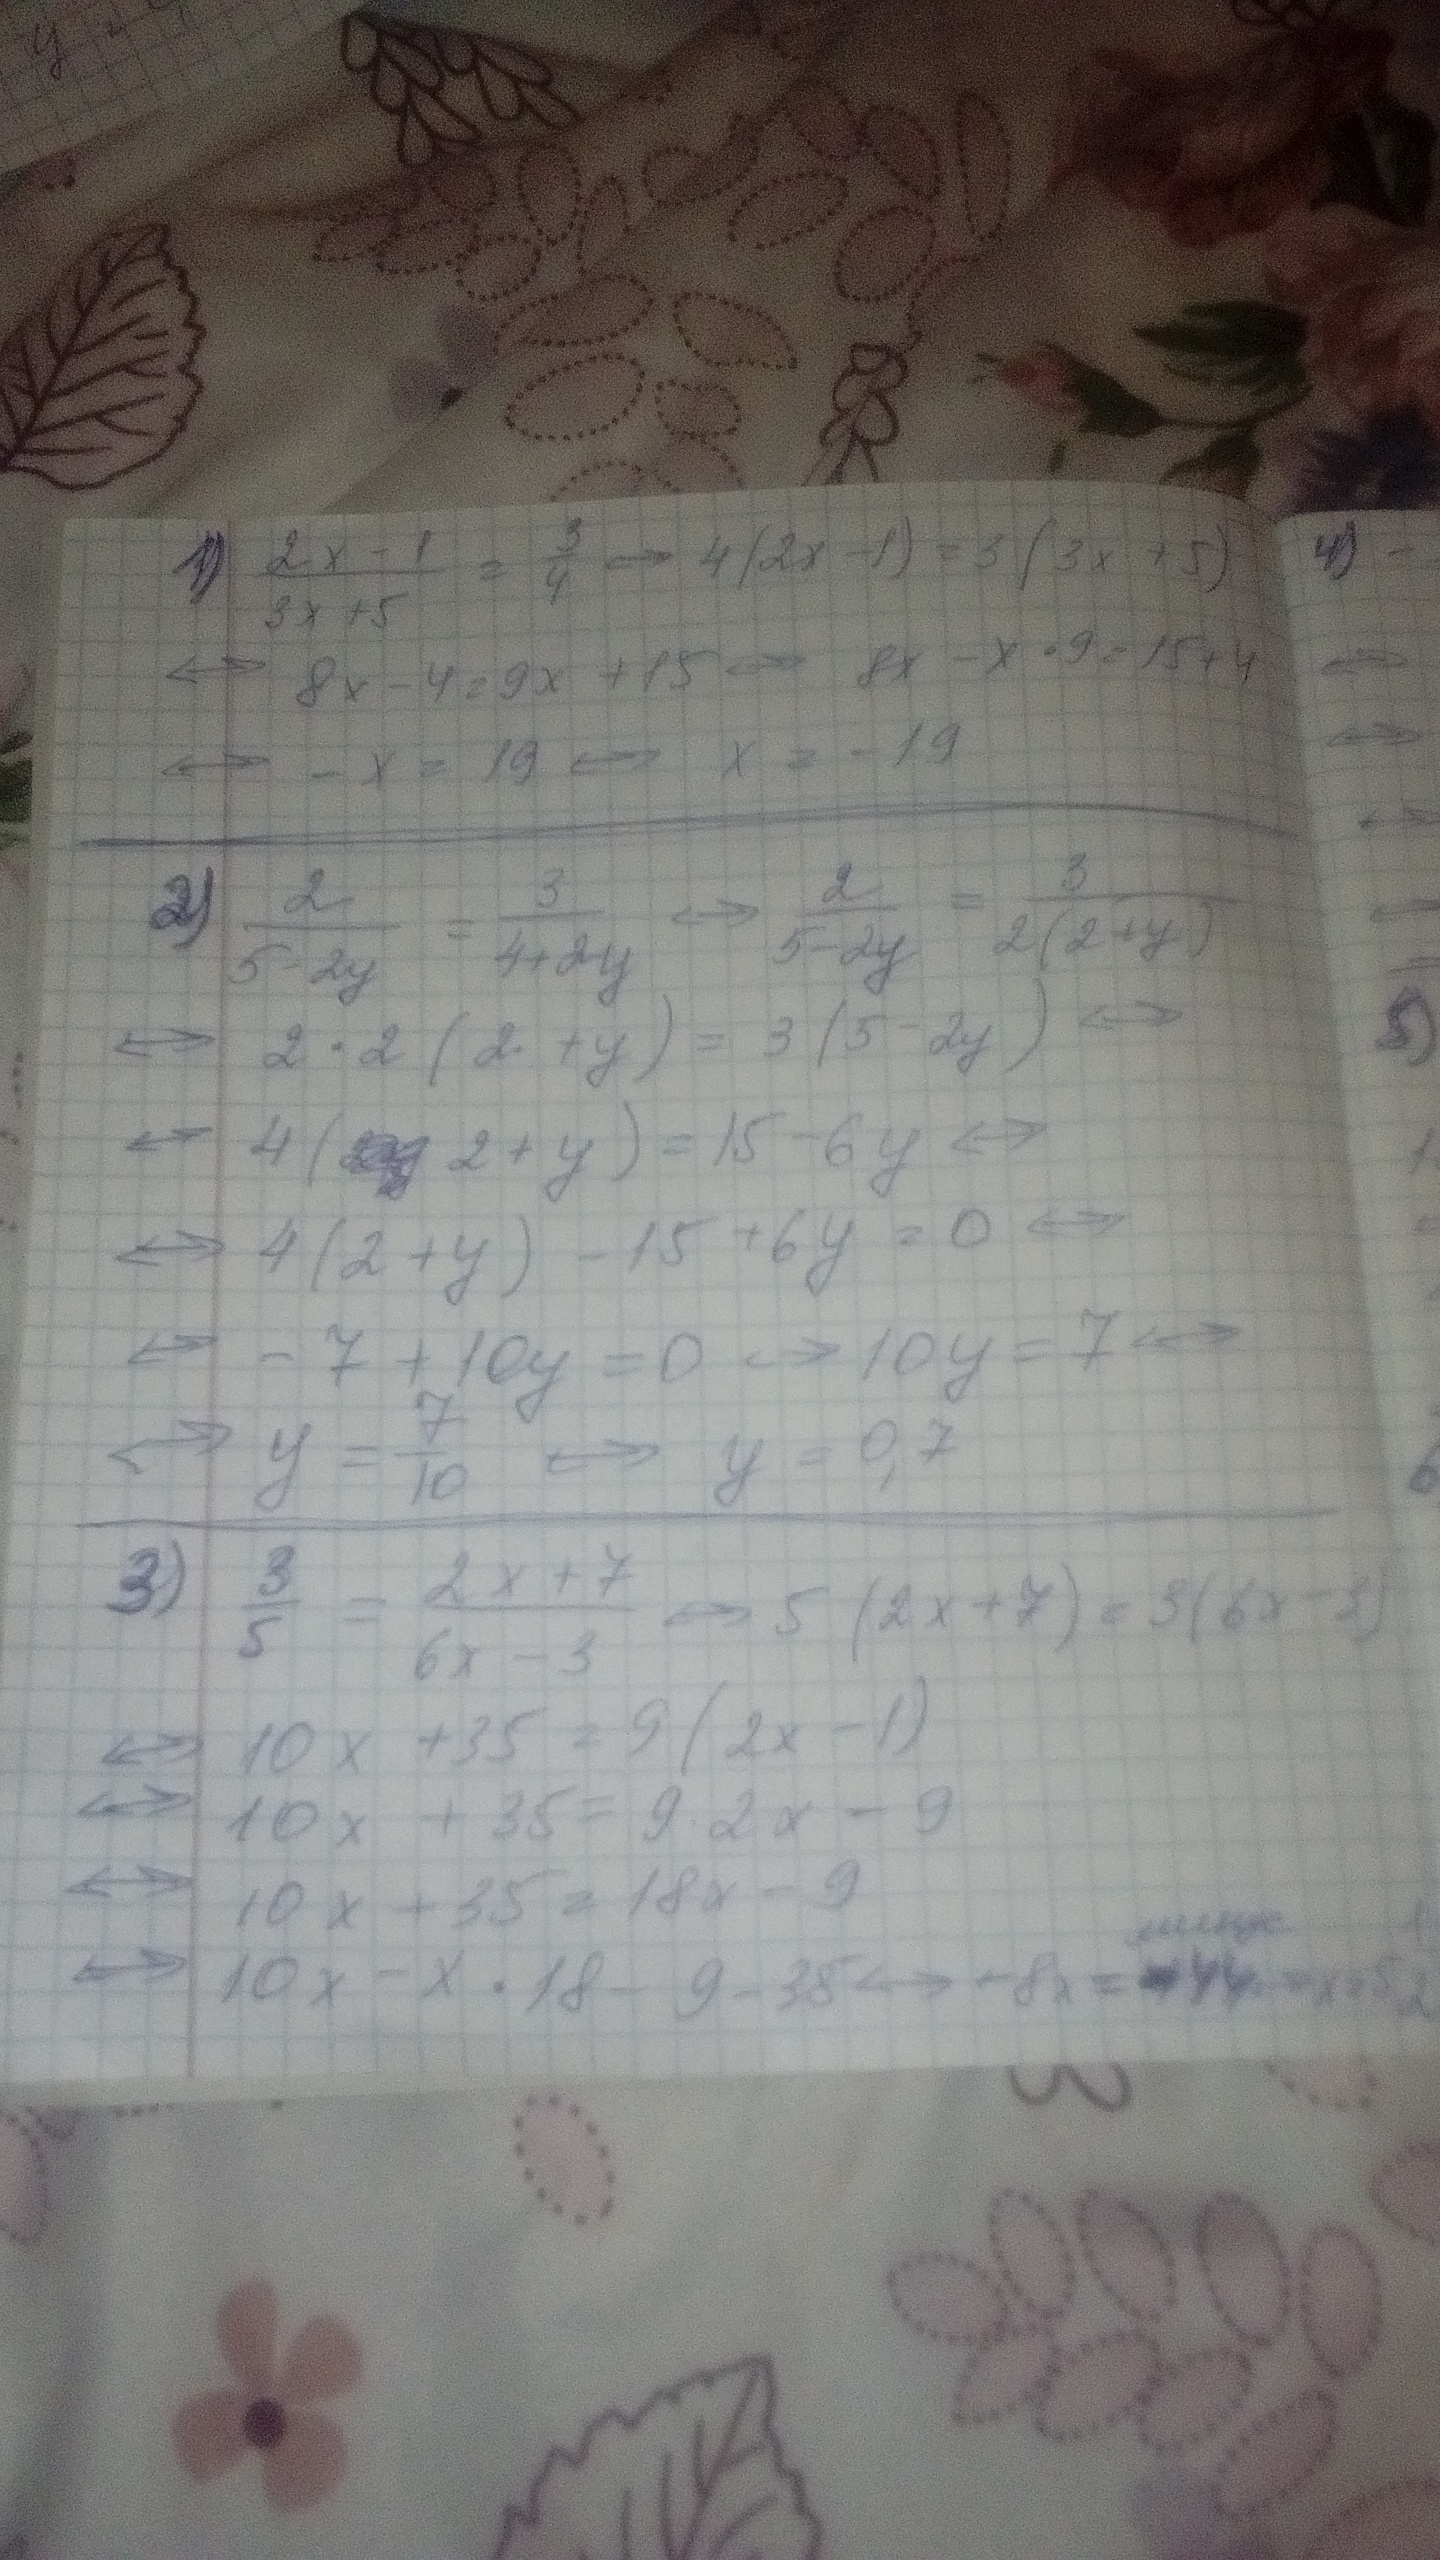 y
1) (2x-1)/(3x+5) = 3/4 ↔ 4(2x-1)=3(3x+5)
↔ 8x-4=9x+15 ↔ 8x-x·9=15+4
↔ -x=19 ↔ x=-19
2) 2/(5-2y) = 3/(4+2y) ↔ 2/(5-2y) = 3/(2(2+y))
↔ 2·2(2+y)=3(5-2y) ↔
↔ 4(2+y)=15-6y ↔
↔ 4(2+y)-15+6y=0 ↔
↔ -7+10y=0 ↔ 10y=7 ↔
↔ y=7/10 ↔ y=0,7
3) 3/5 = (2x+7)/(6x-3) ↔ 5(2x+7)=3(6x-3)
↔ 10x+35=9(2x-1)
↔ 10x+35=9·2x-9
↔ 10x+35=18x-9
минус
↔ 10x-x·18-9-35 ↔ -8x=-44
4) -
↔
↔
↔
5)
6